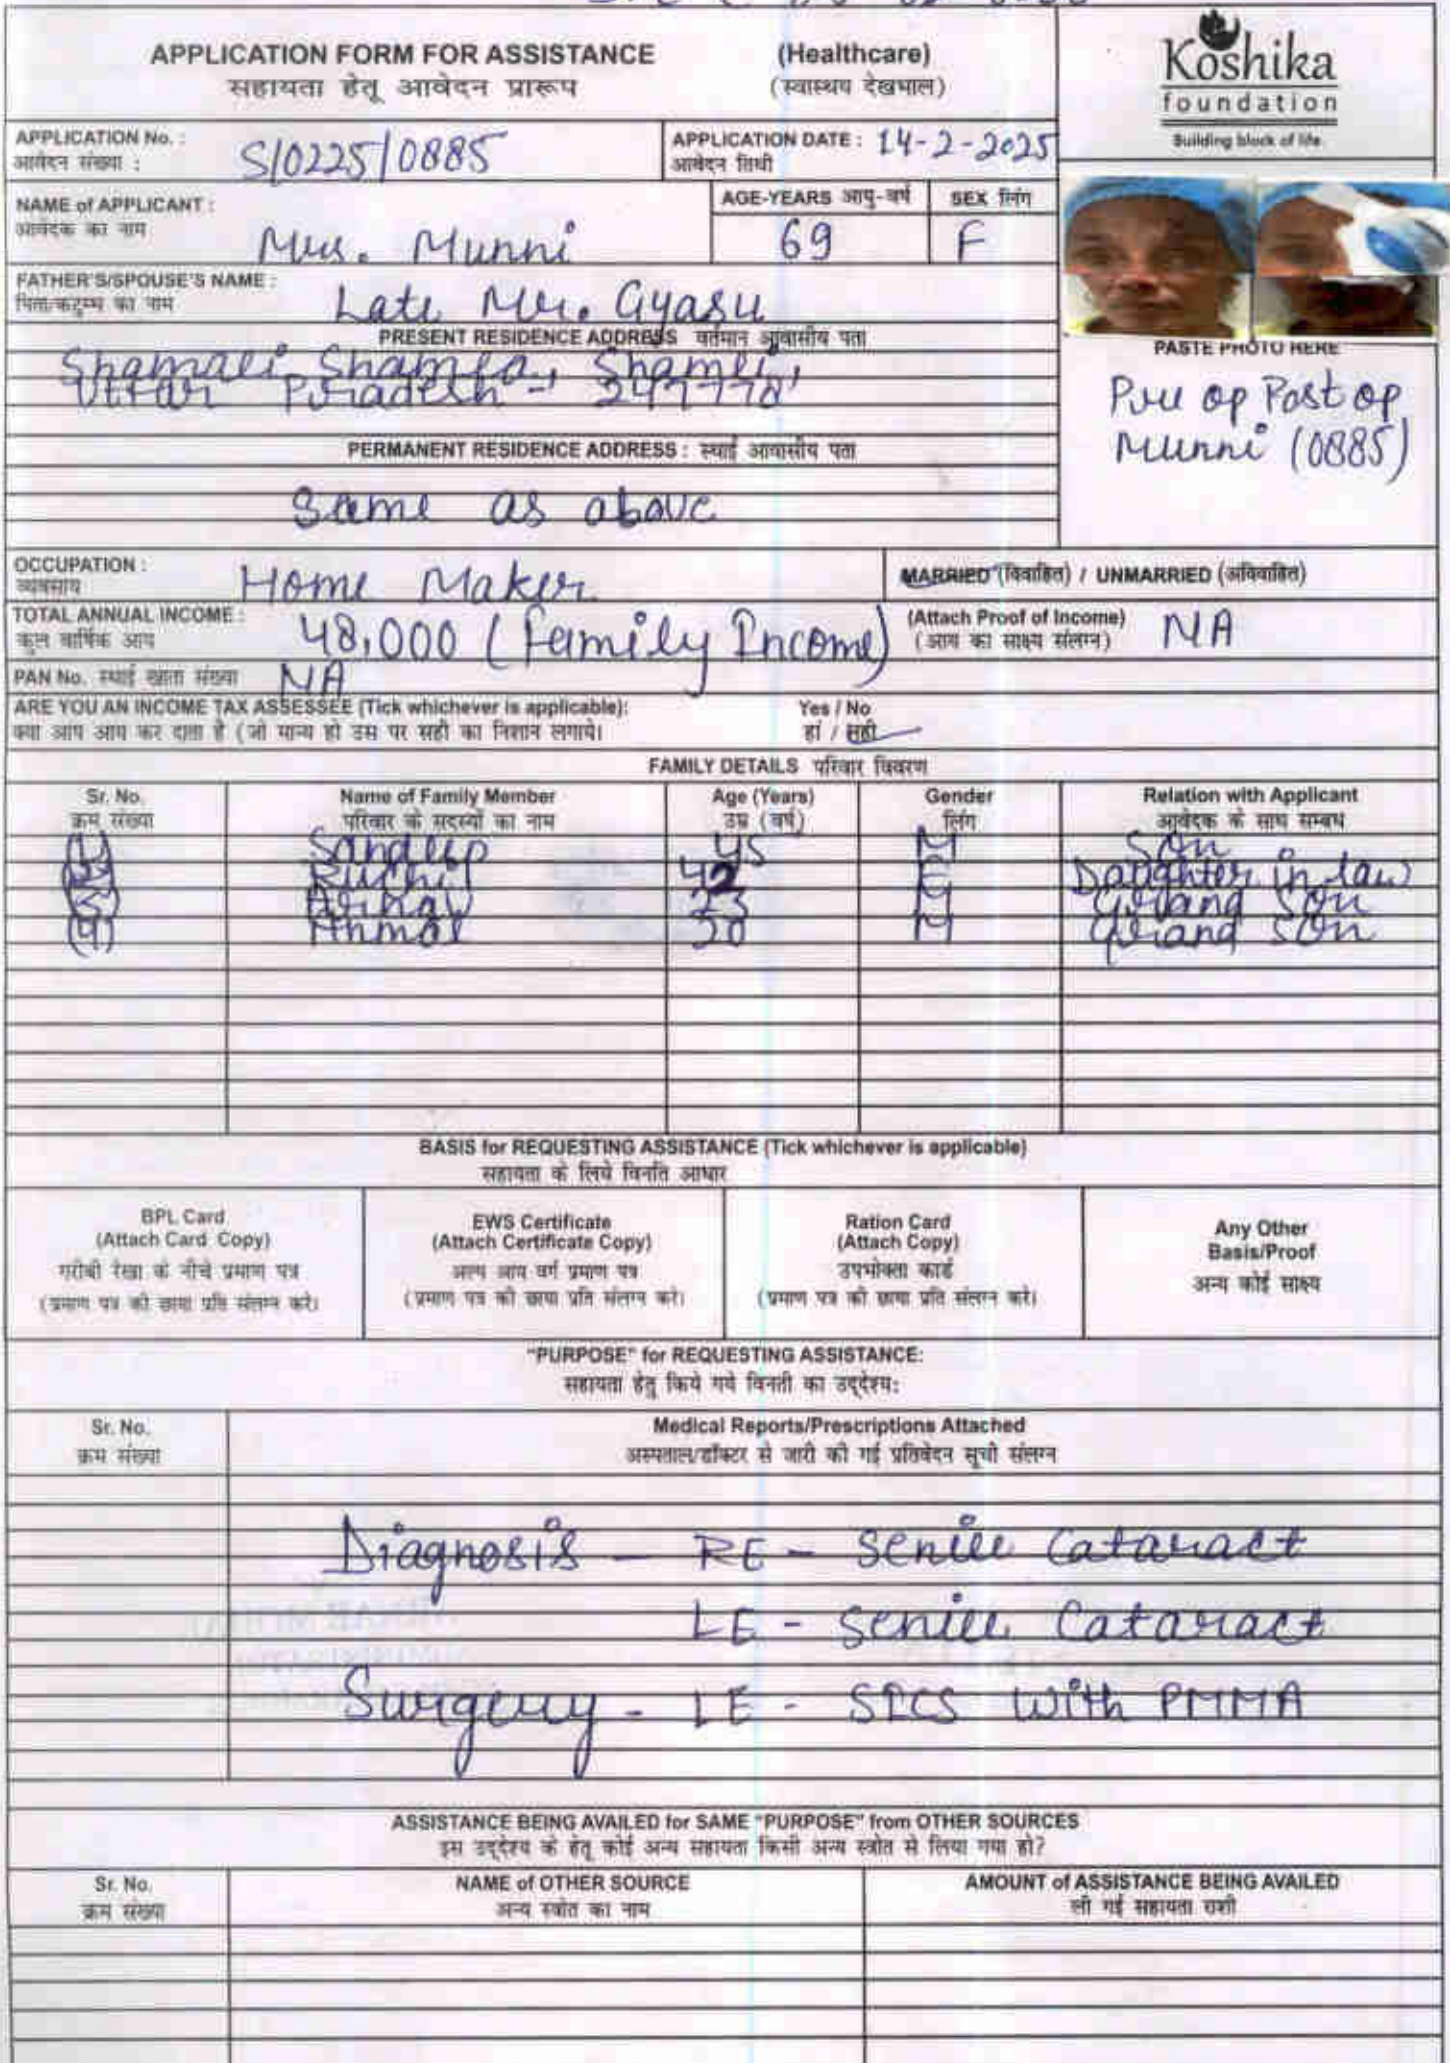 APPLICATION FORM FOR ASSISTANCE (Healthcare)
सहायता हेतू आवेदन प्रारूप (स्वास्थय देखभाल)
Koshika
foundation
Building block of life
APPLICATION No. : S/0225/0885
आवेदन संख्या :
APPLICATION DATE : 14-2-2025
आवेदन तिथी
NAME of APPLICANT : Mrs. Munni
आवेदक का नाम
AGE-YEARS आयु-वर्ष 69
SEX लिंग F
FATHER'S/SPOUSE'S NAME : Late Mr. Gyasu
पिता/कटुम्ब का नाम
PRESENT RESIDENCE ADDRESS वर्तमान आवासीय पता
Uttar Pradesh -
PASTE PHOTO HERE
Pre op Post op
Munni (0885)
PERMANENT RESIDENCE ADDRESS : स्थाई आवासीय पता
Same as above
OCCUPATION : Home Maker
व्यवसाय
MARRIED (विवाहित) / UNMARRIED (अविवाहित)
TOTAL ANNUAL INCOME : 48,000 (Family Income)
कुल वार्षिक आय
(Attach Proof of Income) NA
(आय का साक्ष्य संलग्न)
PAN No. स्थाई खाता संख्या NA
ARE YOU AN INCOME TAX ASSESSEE (Tick whichever is applicable): Yes / No
क्या आप आय कर दाता है (जो मान्य हो उस पर सही का निशान लगाये। हां / नही
FAMILY DETAILS परिवार विवरण
Sr. No. Name of Family Member Age (Years) Gender Relation with Applicant
क्रम संख्या परिवार के सदस्यों का नाम उम्र (वर्ष) लिंग आवेदक के साथ सम्बंध
(1) Sandeep 45 M Son
42 Daughter in law
23 M Grand Son
(4) Anmol 20 M Grand Son
BASIS for REQUESTING ASSISTANCE (Tick whichever is applicable)
सहायता के लिये विनति आधार
BPL Card
(Attach Card Copy)
गरीबी रेखा के नीचे प्रमाण पत्र
(प्रमाण पत्र की छाया प्रति संलग्न करे।
EWS Certificate
(Attach Certificate Copy)
अल्प आय वर्ग प्रमाण पत्र
(प्रमाण पत्र की छाया प्रति संलग्न करे।
Ration Card
(Attach Copy)
उपभोक्ता कार्ड
(प्रमाण पत्र की छाया प्रति संलग्न करे।
Any Other
Basis/Proof
अन्य कोई साक्ष्य
"PURPOSE" for REQUESTING ASSISTANCE:
सहायता हेतु किये गये विनती का उद्देश्य:
Sr. No. Medical Reports/Prescriptions Attached
क्रम संख्या अस्पताल/डॉक्टर से जारी की गई प्रतिवेदन सूची संलग्न
Diagnosis - RE - Senile Cataract
LE - Senile Cataract
Surgery - LE - SICS with PMMA
ASSISTANCE BEING AVAILED for SAME "PURPOSE" from OTHER SOURCES
इस उद्देश्य के हेतू कोई अन्य सहायता किसी अन्य स्त्रोत से लिया गया हो?
Sr. No. NAME of OTHER SOURCE AMOUNT of ASSISTANCE BEING AVAILED
क्रम संख्या अन्य स्त्रोत का नाम ली गई सहायता राशी